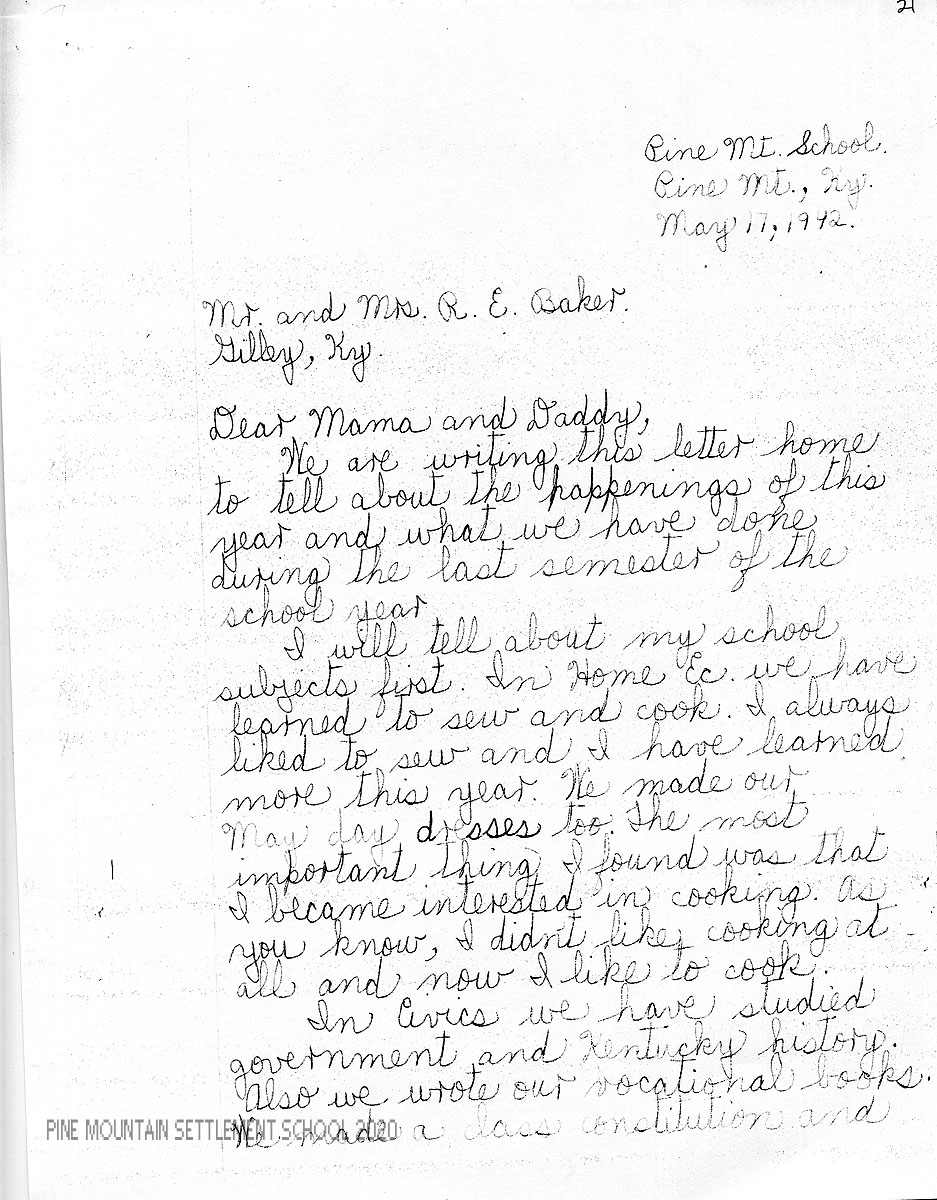 21
Pine Mt. School.
Pine Mt., Ky.
May 17, 1942.
Mr. and Mrs. R. E. Baker.
Gilley, Ky.
Dear Mama and Daddy,
We are writing this letter home
to tell about the happenings of this
year and what we have done
during the last semester of the
school year
I will tell about my school
subjects first. In Home Ec. we have
learned to sew and cook. I always
liked to sew and I have learned
more this year. We made our
May day dresses too. The most
important thing I found was that
I became interested in cooking. As
you know, I didn't like cooking at
all and now I like to cook.
In Civics we have studied
government and Kentucky history.
Also we wrote our vocational books.
We made a class constitution and
PINE MOUNTAIN SETTLEMENT SCHOOL 2020